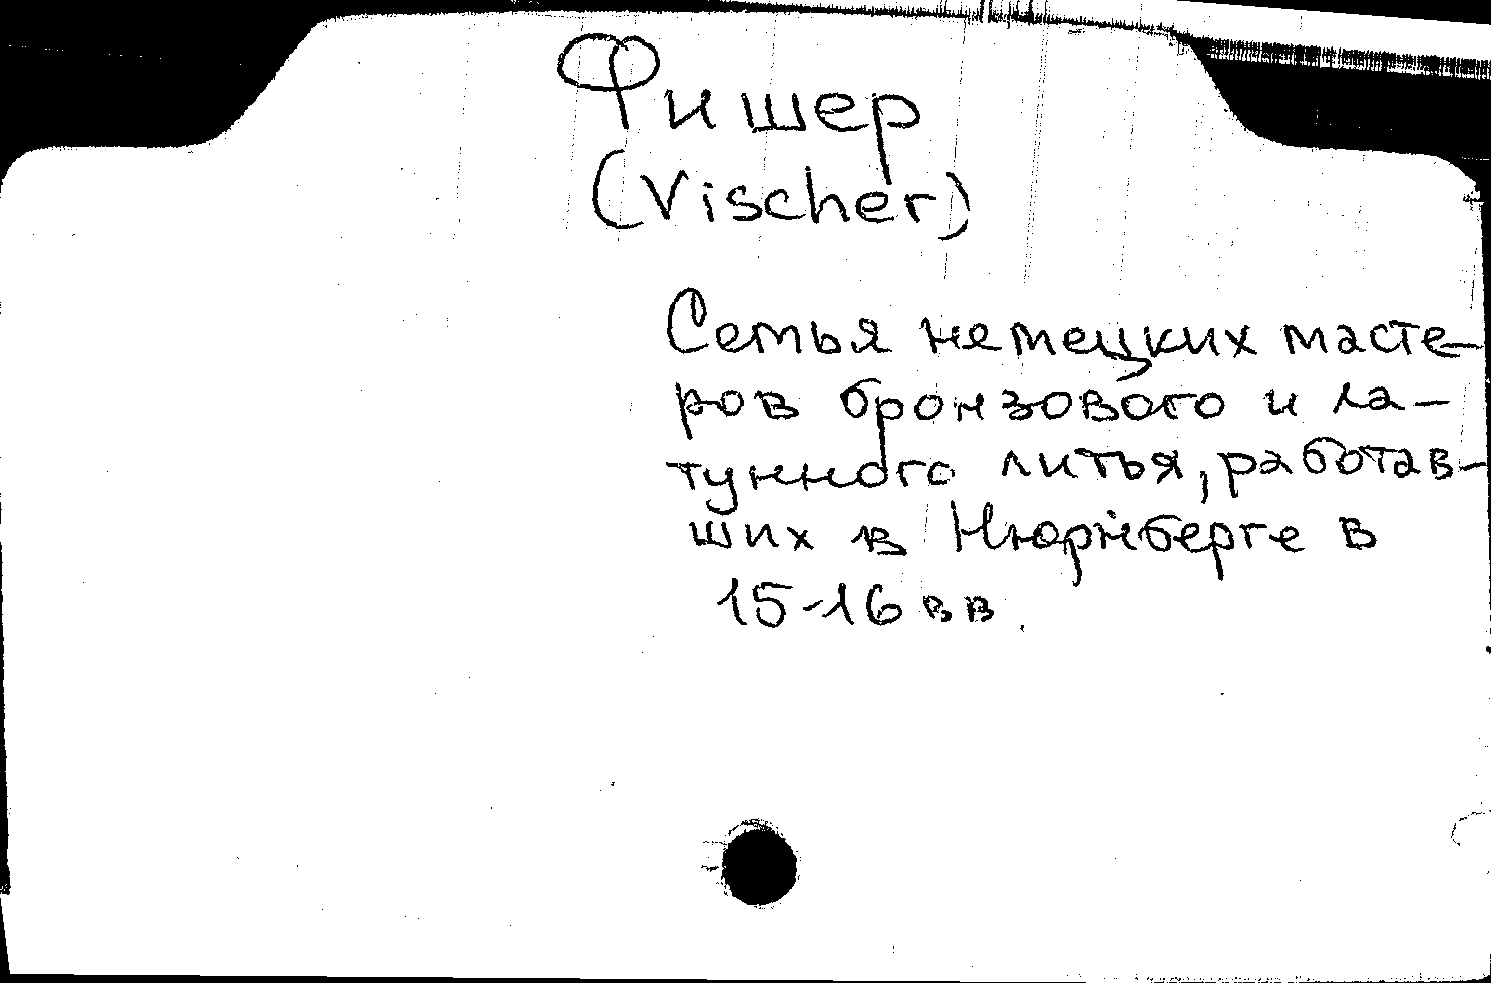 Фишер
(Vischer)
Семья немецких масте-
ров бронзового и ла-
тунного литья, работав-
ших в Нюрнберге в
15-16 вв.